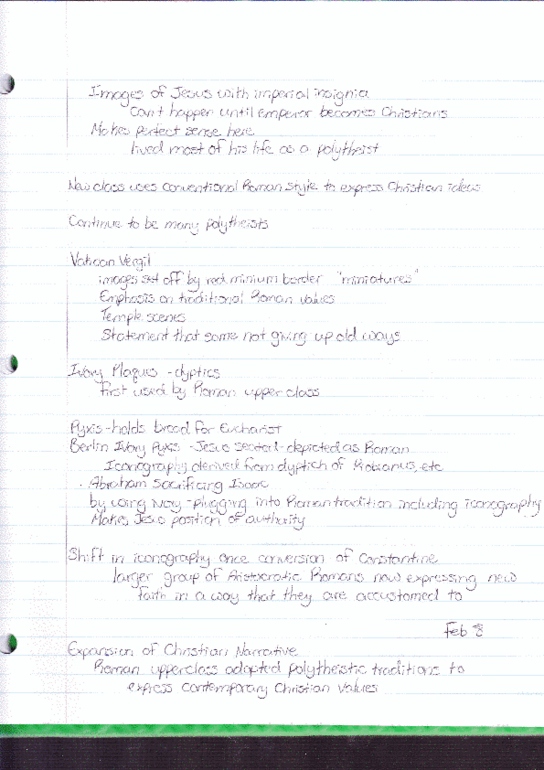 Images of Jesus with imperial insignia
can't happen until emperor becomes Christians
Makes perfect sense here
lived most of his life as a polytheist
New class uses conventional Roman style to express Christian ideas
Continue to be many polytheists
Vatican Vergil
images set off by red minium border "miniatures"
Emphasis on traditional Roman values
Temple scenes
Statement that some not giving up old ways
Ivory Plaques - dyptics
first used by Roman upper class
Pyxis - holds bread for Eucharist
Berlin Ivory Pyxis - Jesus seated - depicted as Roman
Iconography derived from dyptich of etc
· Abraham Sacrificing Isaac
by using ivory - plugging into Roman tradition including iconography
Makes Jesus position of authority
Shift in iconography once conversion of Constantine
larger group of Aristocratic Romans now expressing new
faith in a way that they are accustomed to
Feb 8
Expansion of Christian Narrative
Roman upperclass adapted polytheistic traditions to
express contemporary Christian values